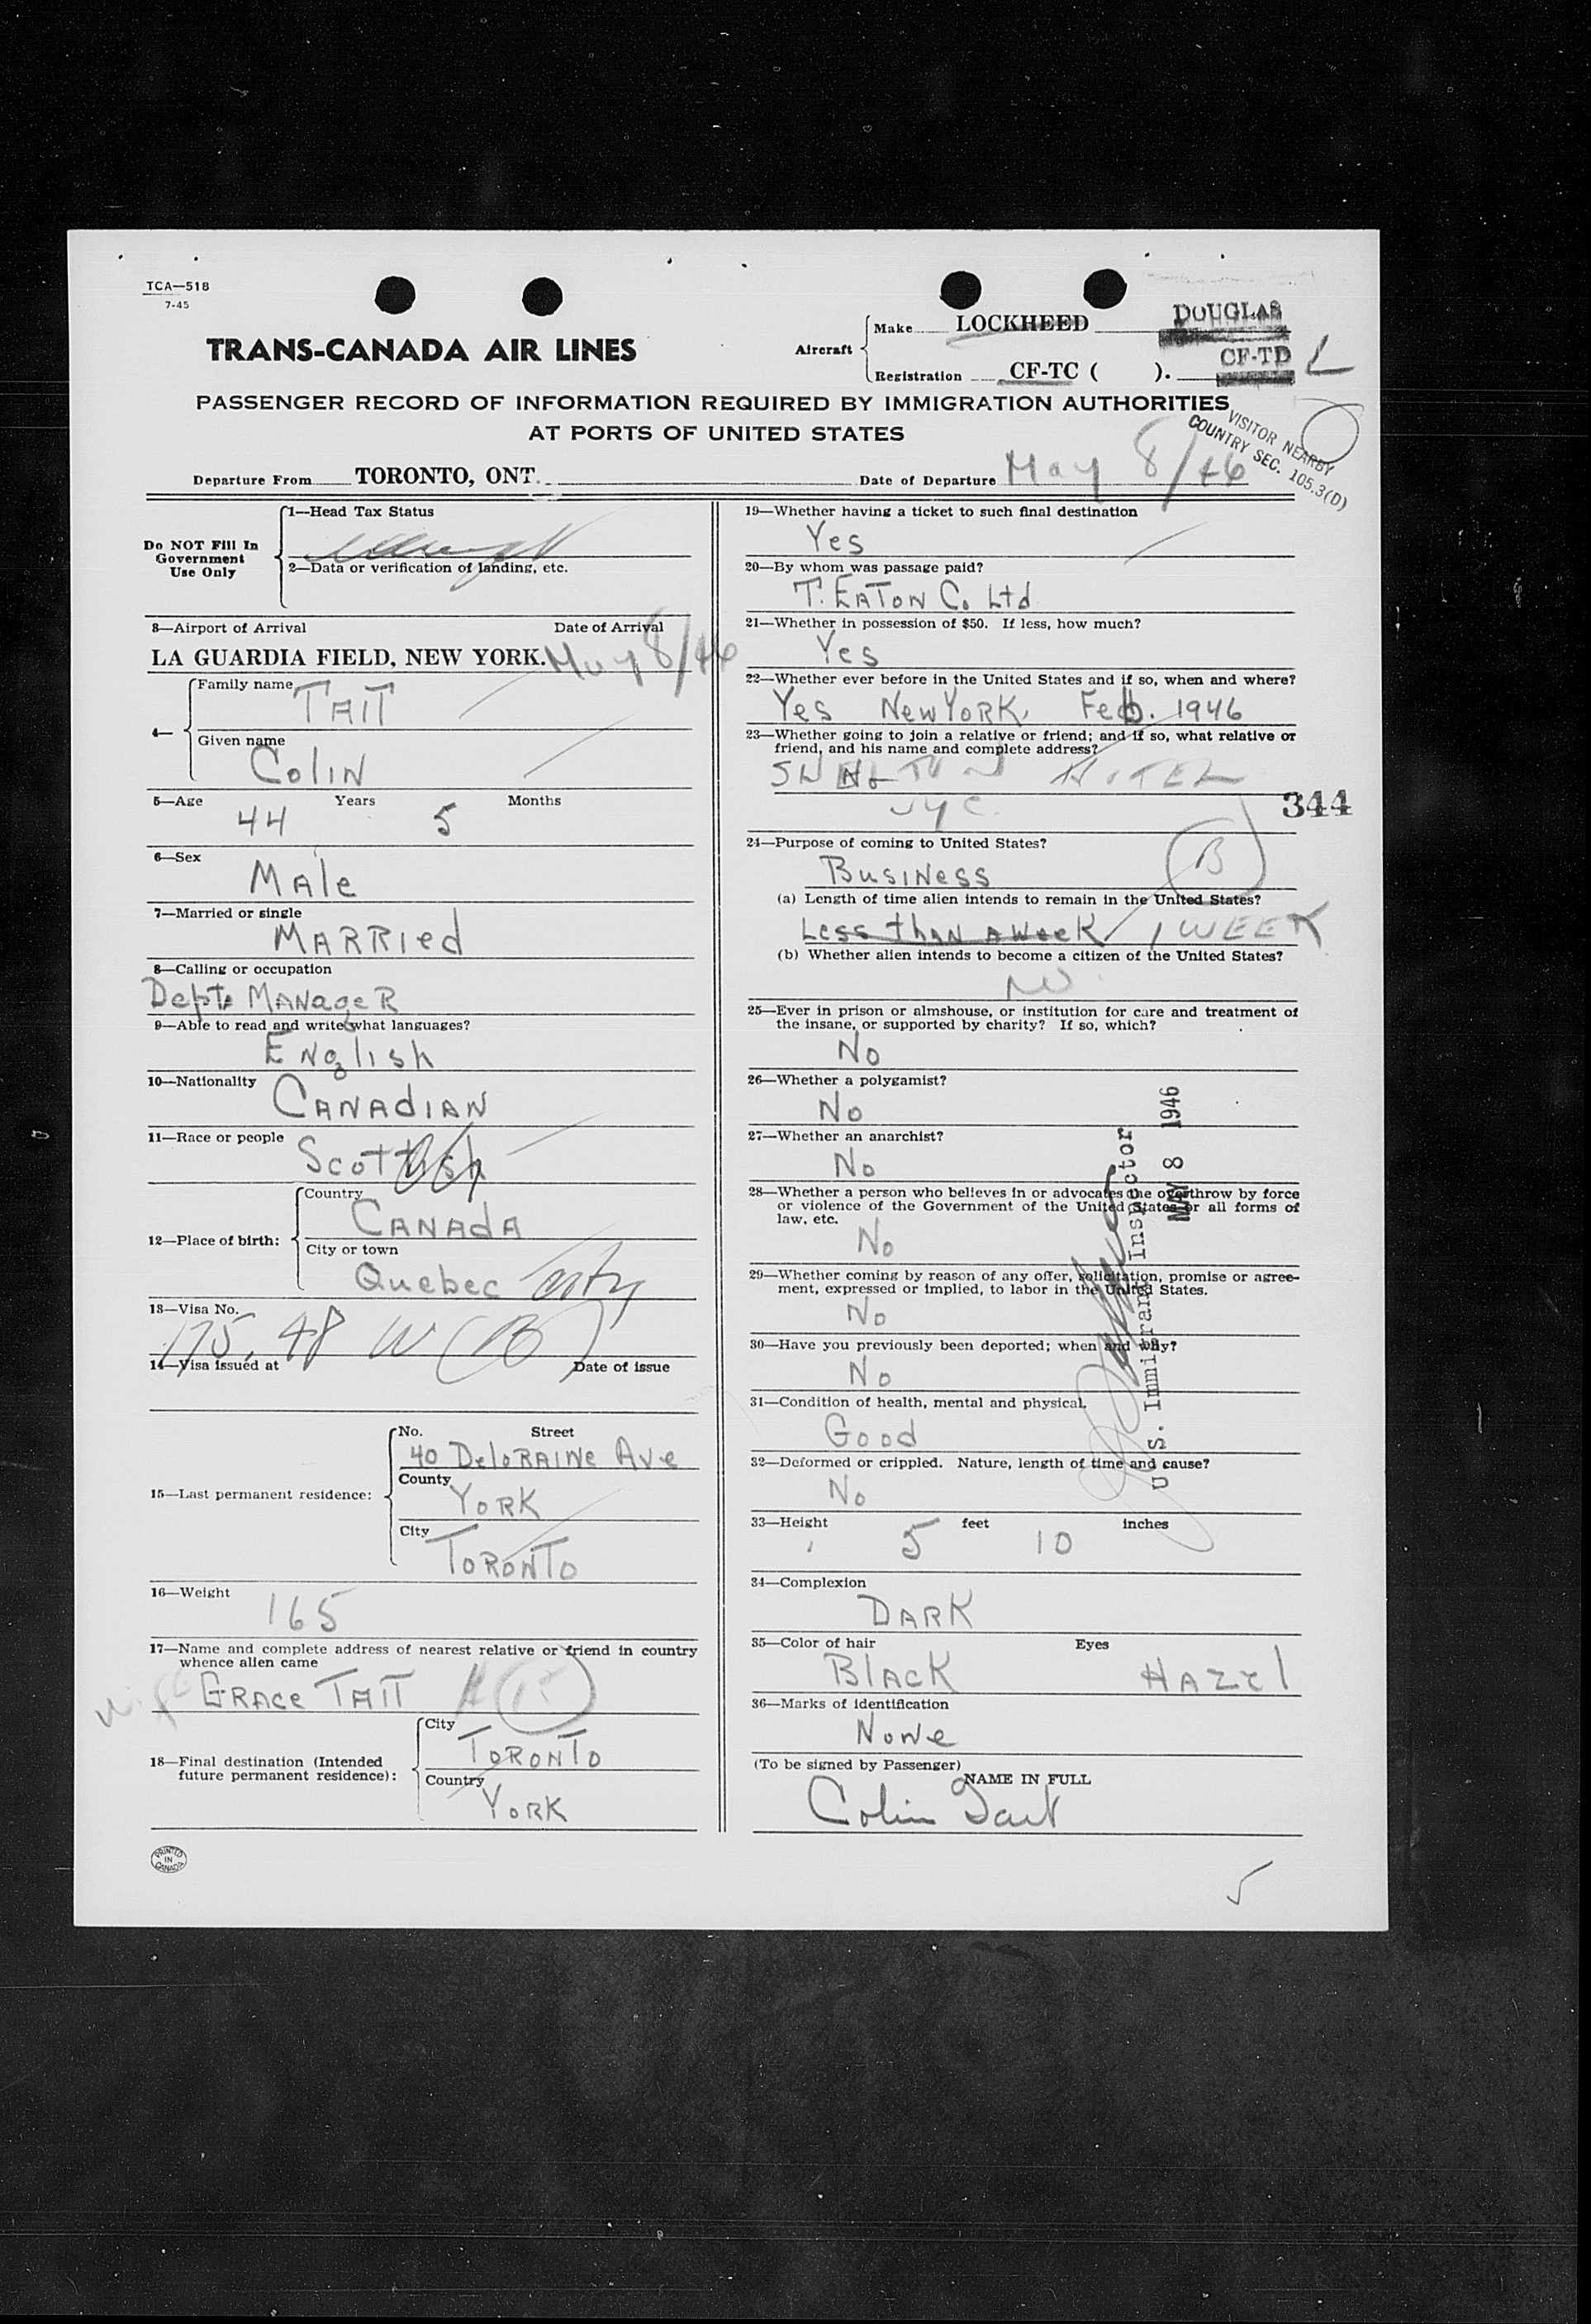 TCA—518
7-45
TRANS-CANADA AIR LINES
Aircraft
Make LOCKHEED DOUGLAS
Registration CF-TC ( ). CF-TD L
PASSENGER RECORD OF INFORMATION REQUIRED BY IMMIGRATION AUTHORITIES
AT PORTS OF UNITED STATES
VISITOR NEARBY
COUNTRY SEC. 105.3(D)
Departure From TORONTO, ONT. Date of Departure May 8/46
Do NOT Fill In
Government
Use Only
1—Head Tax Status
2—Data or verification of landing, etc.
3—Airport of Arrival Date of Arrival
LA GUARDIA FIELD, NEW YORK. May 8/46
4—
Family name
TAIT
Given name
Colin
5—Age Years Months
44 5
6—Sex
Male
7—Married or single
MARRied
8—Calling or occupation
Dept. MANageR
9—Able to read and write what languages?
ENglish
10—Nationality
CANAdIAN
11—Race or people
Scottish
12—Place of birth:
Country
CANAdA
City or town
Quebec City
13—Visa No.
175.48 W (B)
14—Visa issued at Date of issue
15—Last permanent residence:
No. Street
40 DeloRAINe Ave
County
YORK
City
TORONTO
16—Weight
165
17—Name and complete address of nearest relative or friend in country
whence alien came
wife GRAce TAIT
18—Final destination (Intended
future permanent residence):
City
TORONTO
Country
YORK
PRINTED
IN
CANADA
19—Whether having a ticket to such final destination
Yes
20—By whom was passage paid?
T. EATON Co. Ltd
21—Whether in possession of $50. If less, how much?
Yes
22—Whether ever before in the United States and if so, when and where?
Yes New YORK, Feb. 1946
23—Whether going to join a relative or friend; and if so, what relative or
friend, and his name and complete address?
HOTEL
NYC.
344
24—Purpose of coming to United States?
BusiNess B
(a) Length of time alien intends to remain in the United States?
Less thAN A Week 1 WEEK
(b) Whether alien intends to become a citizen of the United States?
No
25—Ever in prison or almshouse, or institution for care and treatment of
the insane, or supported by charity? If so, which?
No
26—Whether a polygamist?
No
27—Whether an anarchist?
No
28—Whether a person who believes in or advocates the overthrow by force
or violence of the Government of the United States or all forms of
law, etc.
No
29—Whether coming by reason of any offer, solicitation, promise or agree-
ment, expressed or implied, to labor in the United States.
No
30—Have you previously been deported; when and why?
No
31—Condition of health, mental and physical.
Good
32—Deformed or crippled. Nature, length of time and cause?
No
33—Height feet inches
5 10
34—Complexion
DARK
35—Color of hair Eyes
BlAcK HAzel
36—Marks of identification
NoNe
(To be signed by Passenger)
NAME IN FULL
Colin Tait
U. S. Immigrant Inspector
MAY 8 1946
5